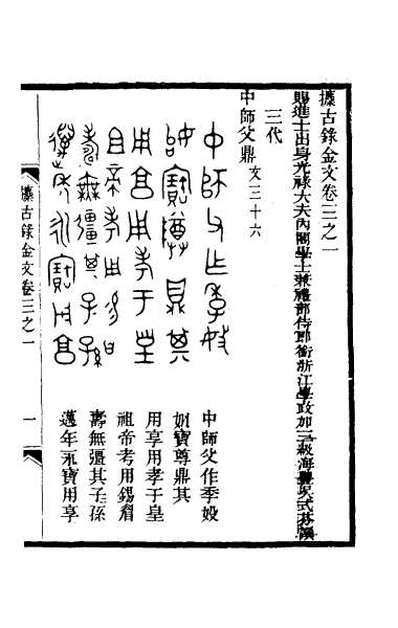 攈古錄金文卷三之一
賜進士出身光祿大夫內閣學士兼禮部侍郎銜浙江學政加三級海豐吳式芬撰
三代
中師父鼎 文三十六
中師父作季
寶尊鼎其
用享用孝于皇
祖帝考用錫眉
壽無彊其子孫
萬年永寶用享
攈古錄金文卷三之一
一